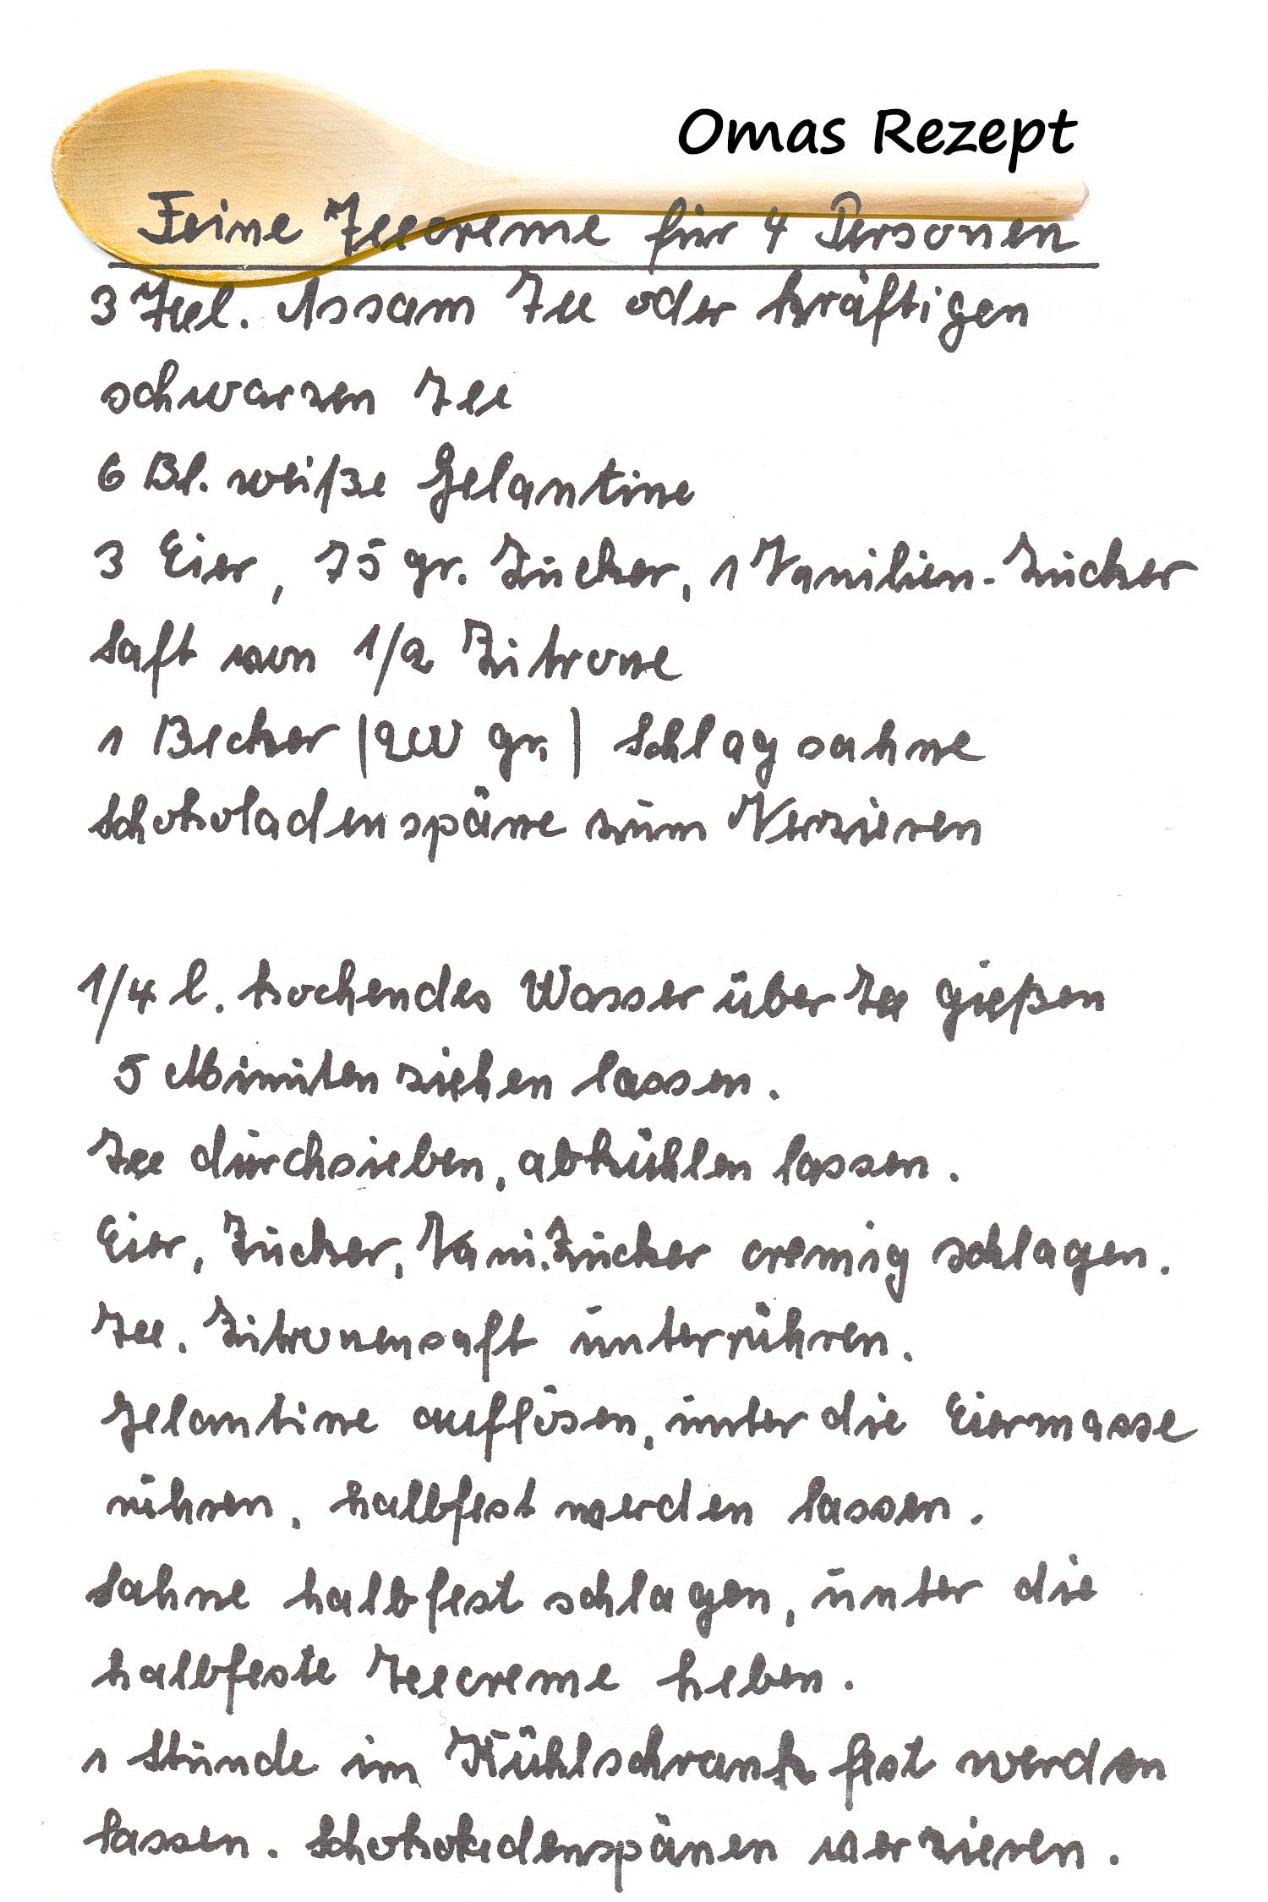 Omas Rezept
Feine Teecreme für 4 Personen
3 Teel. Assam Tee oder kräftigen
schwarzen Tee
6 Bl. weiße Gelantine
3 Eier, 75 gr. Zucker, 1 Vanilien-Zucker
Saft von 1/2 Zitrone
1 Becher (200 gr.) Schlagsahne
Schokoladenspäne zum Verzieren
1/4 l. kochendes Wasser über Tee gießen
5 Minuten ziehen lassen.
Tee durchsieben, abkühlen lassen.
Eier, Zucker, Vani.Zucker cremig schlagen.
Tee. Zitronensaft unterrühren.
Gelantine auflösen, unter die Eiermasse
rühren, halbfest werden lassen.
Sahne halbfest schlagen, unter die
halbfeste Teecreme heben.
1 Stunde im Kühlschrank fest werden
lassen. Schokoladenspänen verzieren.